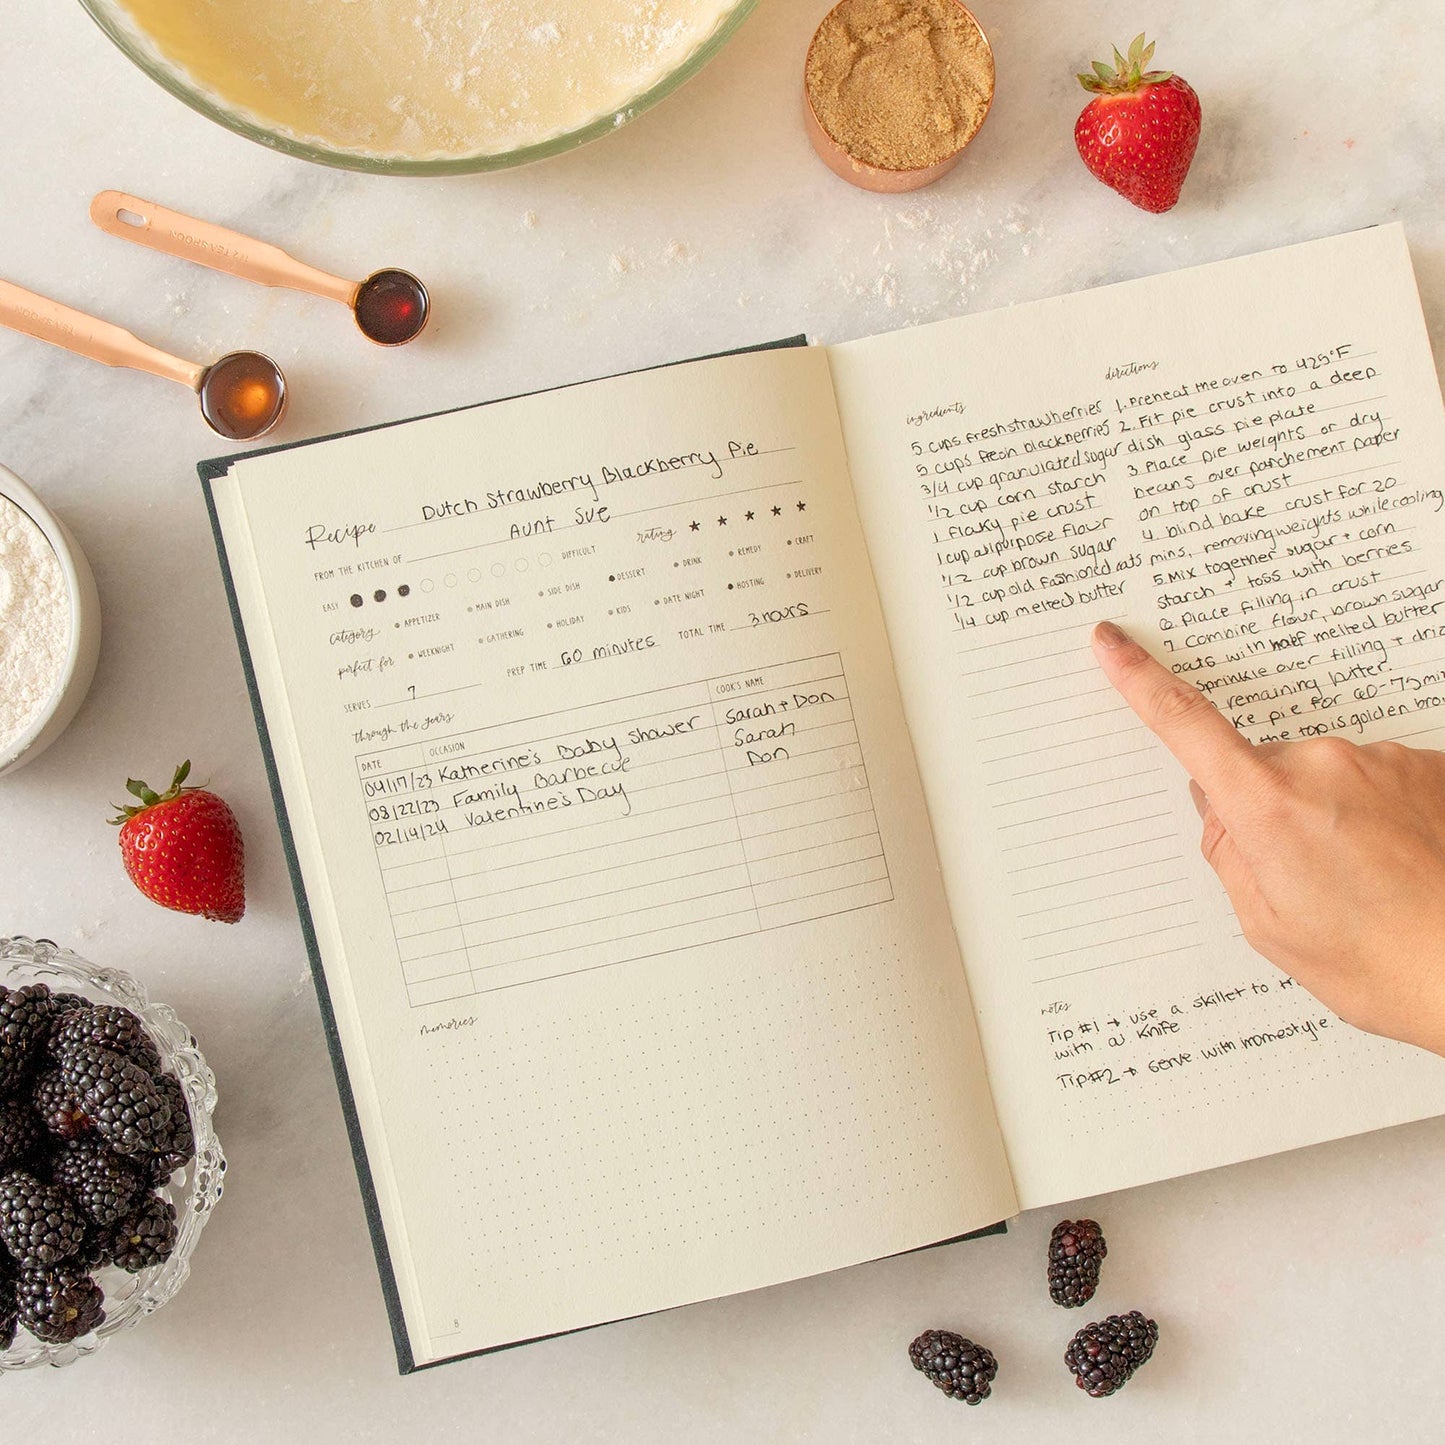 1/2 TEASPOON
TEASPOON
Recipe Dutch Strawberry Blackberry Pie
FROM THE KITCHEN OF Aunt Sue
EASY DIFFICULT rating ★ ★ ★ ★ ★
category APPETIZER MAIN DISH SIDE DISH DESSERT DRINK REMEDY CRAFT
perfect for WEEKNIGHT GATHERING HOLIDAY KIDS DATE NIGHT HOSTING DELIVERY
SERVES 7 PREP TIME 60 minutes TOTAL TIME 3 hours
through the years
DATE OCCASION COOK'S NAME
04/17/23 Katherine's Baby Shower Sarah + Don
08/22/23 Family Barbecue Sarah
02/14/24 Valentine's Day Don
memories
8
ingredients
5 cups fresh strawberries
5 cups fresh blackberries
3/4 cup granulated sugar
1/2 cup corn starch
1 flaky pie crust
1 cup all purpose flour
1/2 cup brown sugar
1/2 cup old fashioned oats
1/4 cup melted butter
directions
1. Preheat the oven to 425°F
2. Fit pie crust into a deep
dish glass pie plate
3 Place pie weights or dry
beans over parchement paper
on top of crust
4. blind bake crust for 20
mins, removing weights while cooling
5. Mix together sugar + corn
starch + toss with berries
6. Place filling in crust
7 Combine flour, brown sugar
oats with half melted butter
Sprinkle over filling + driz
remaining butter.
ke pie for 60-75 mi
the top is golden bro
notes
Tip #1 → use a skillet to
with a knife
Tip #2 → Serve with homestyle